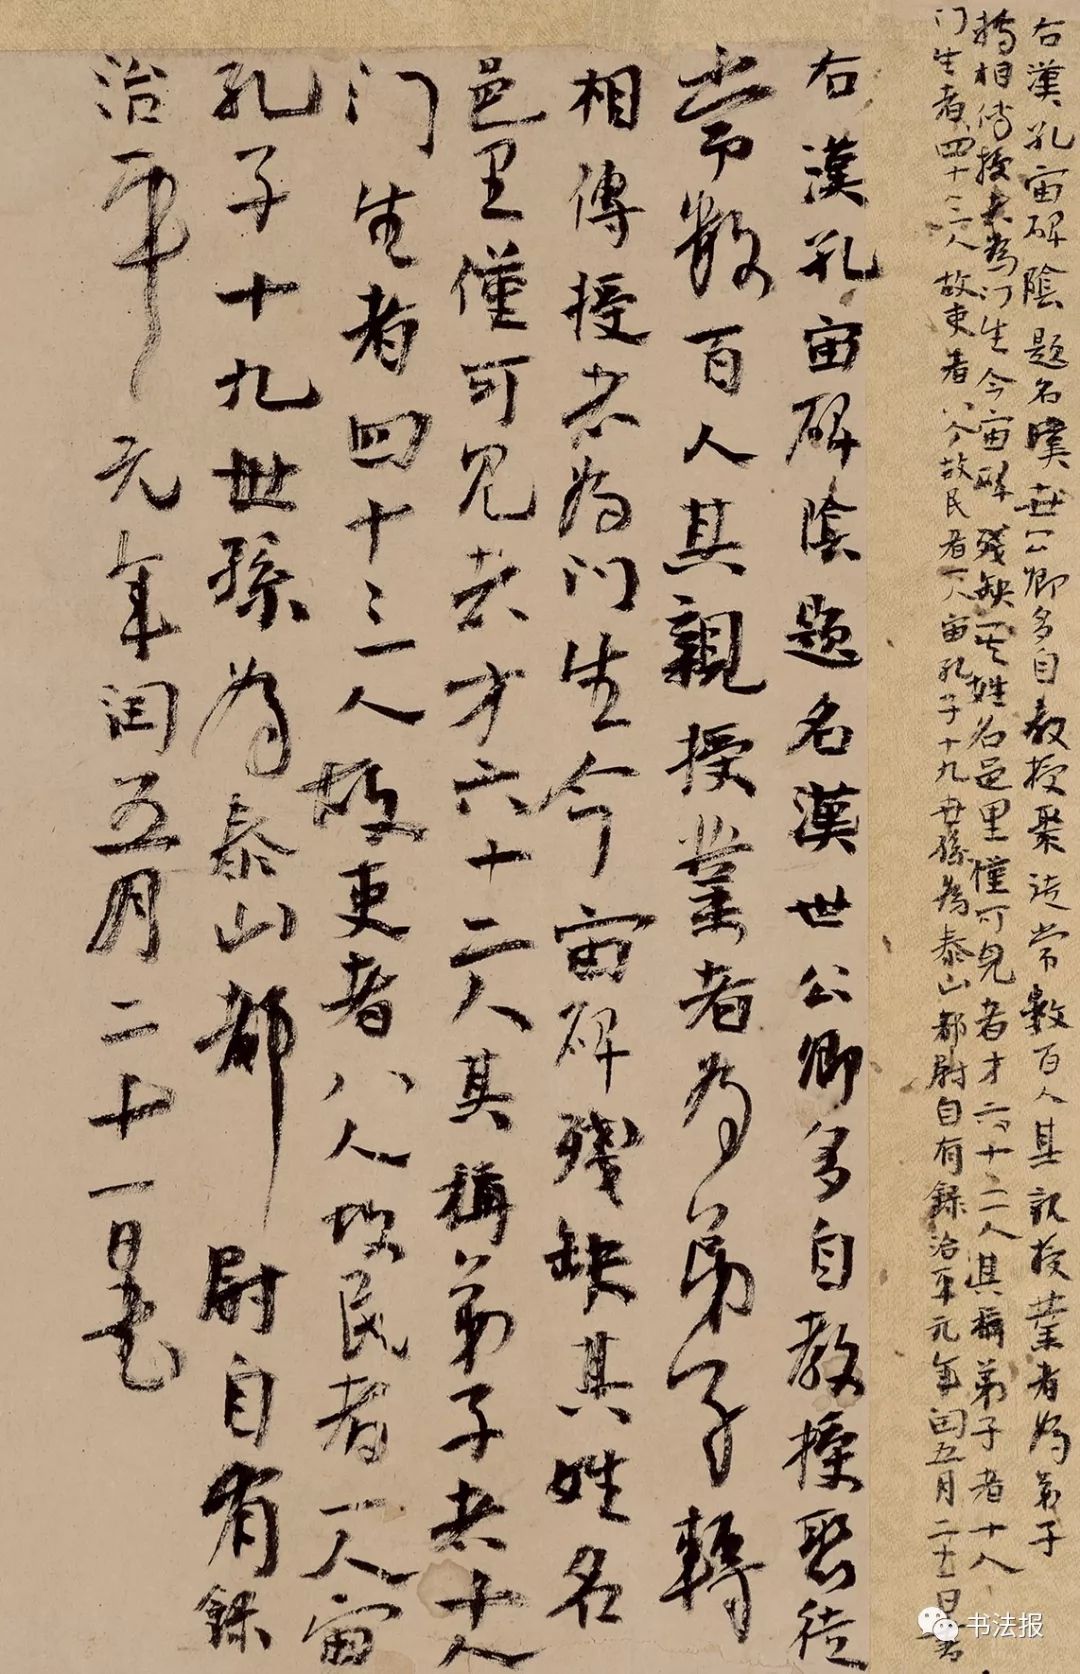 右漢孔宙碑陰題名漢世公卿多自教授聚徒常數百人其親授業者為弟子
轉相傳授者為门生今宙碑殘缺其姓名邑里僅可見者才六十二人其稱弟子者十人
门生者四十三人故吏者八人故民者一人宙孔子十九世孫為泰山都尉自有錄治平元年闰五月二十一日書
右漢孔宙碑陰題名漢世公卿多自教授聚徒
常數百人其親授業者為弟子轉
相傳授者為门生今宙碑殘缺其姓名
邑里僅可見者才六十二人其稱弟子者十人
门生者四十三人故吏者八人故民者一人宙
孔子十九世孫為泰山都尉自有錄
治平元年闰五月二十一日書
书法报